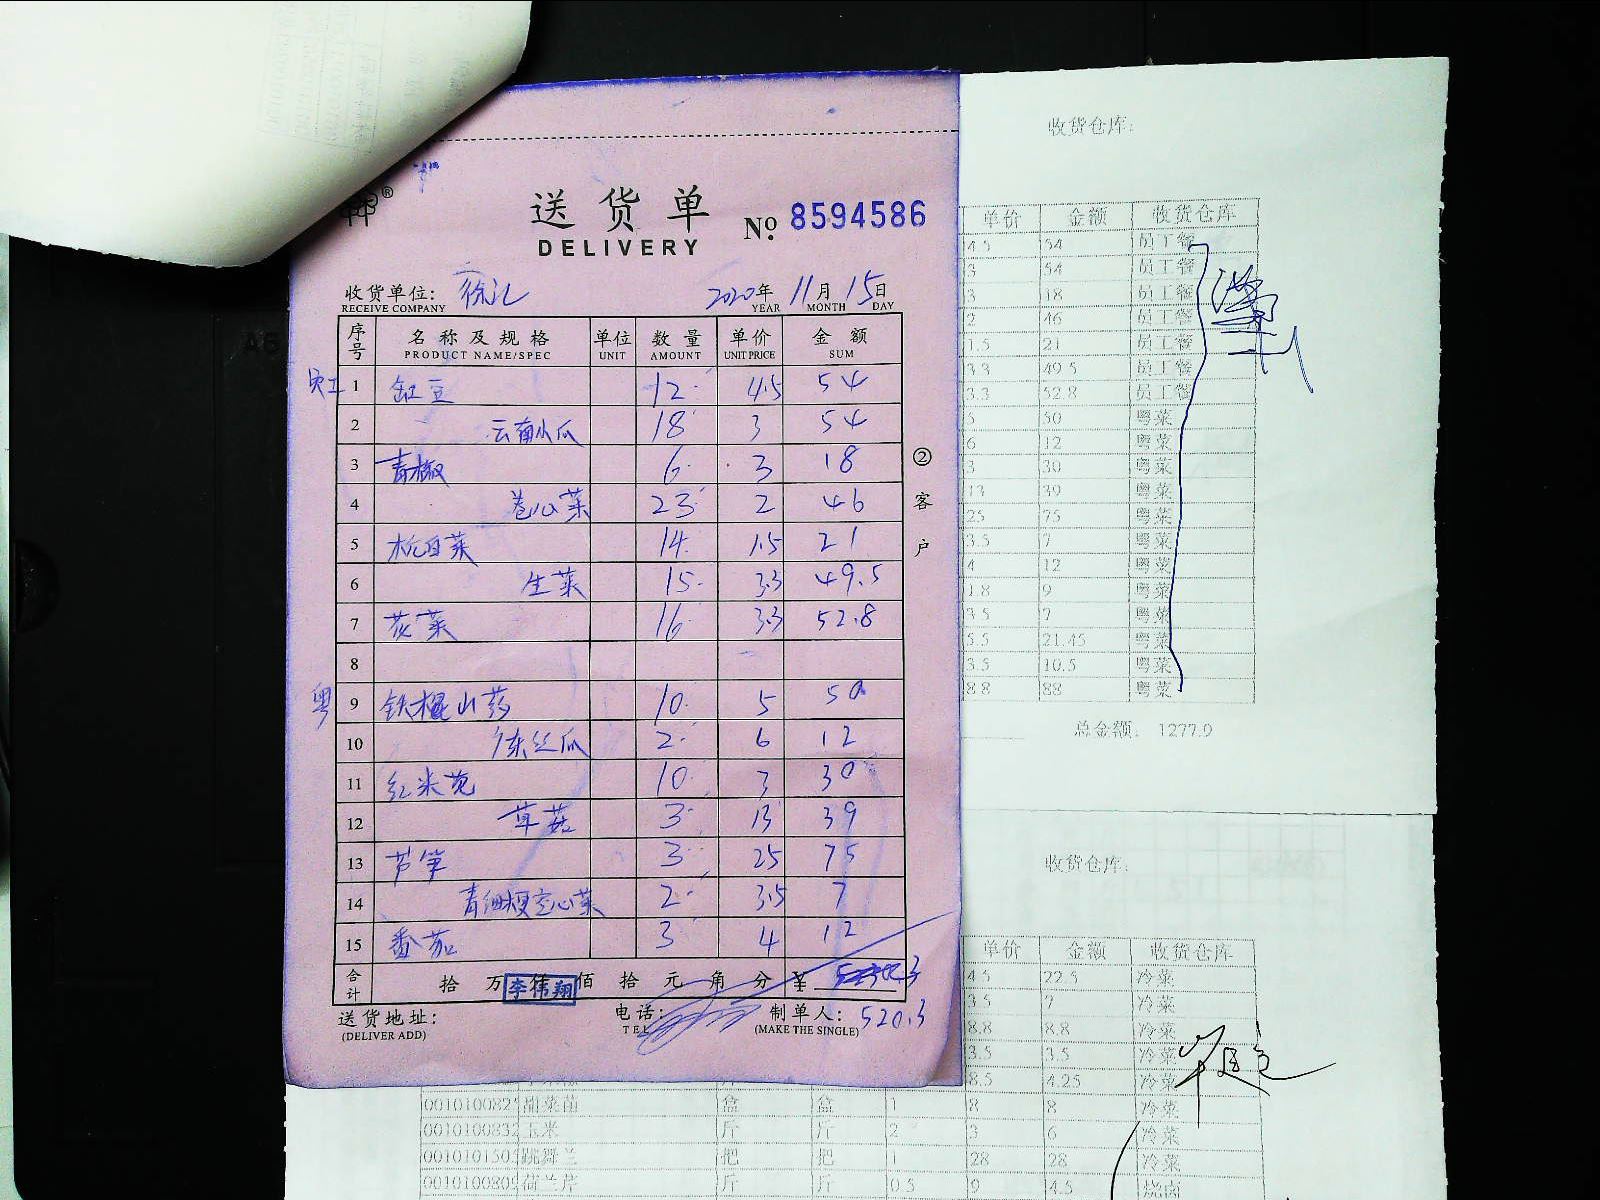 送货单
DELIVERY
No. 8594586
收货单位: 徐汇 2020年 11月 15日
RECEIVE COMPANY YEAR MONTH DAY
序号 名称及规格 单位 数量 单价 金额
PRODUCT NAME/SPEC UNIT AMOUNT UNIT PRICE SUM
员工 1 缸豆 12 4.5 54
2 云南小瓜 18 3 54
3 青椒 6 3 18
4 卷心菜 23 2 46
5 杭白菜 14 1.5 21
6 生菜 15 3.3 49.5
7 花菜 16 3.3 52.8
8
粤 9 铁棍山药 10 5 50
10 广东丝瓜 2 6 12
11 红米苋 10 3 30
12 草菇 3 13 39
13 芦笋 3 25 75
14 青细梗空心菜 2 3.5 7
15 番茄 3 4 12
合计 拾 万 仟 佰 拾 元 角 分 ¥
李伟翔
520.3
送货地址: 电话: 制单人:
(DELIVER ADD) TEL (MAKE THE SINGLE)
②客户
收货仓库:
单价 金额 收货仓库
4.5 54 员工餐
3 54 员工餐
3 18 员工餐
2 46 员工餐
1.5 21 员工餐
3.3 49.5 员工餐
3.3 52.8 员工餐
5 50 粤菜
6 12 粤菜
3 30 粤菜
13 39 粤菜
25 75 粤菜
3.5 7 粤菜
4 12 粤菜
1.8 9 粤菜
3.5 7 粤菜
5.5 21.45 粤菜
3.5 10.5 粤菜
8.8 88 粤菜
总金额: 1277.9
收货仓库:
单价 金额 收货仓库
4.5 22.5 冷菜
3.5 7 冷菜
8.8 8.8 冷菜
3.5 3.5 冷菜
8.5 4.25 冷菜
甜菜苗 盒 盒 1 8 8 冷菜
玉米 斤 斤 2 3 6 冷菜
跳舞兰 把 把 1 28 28 冷菜
荷兰芹 斤 斤 0.5 9 4.5 烧卤